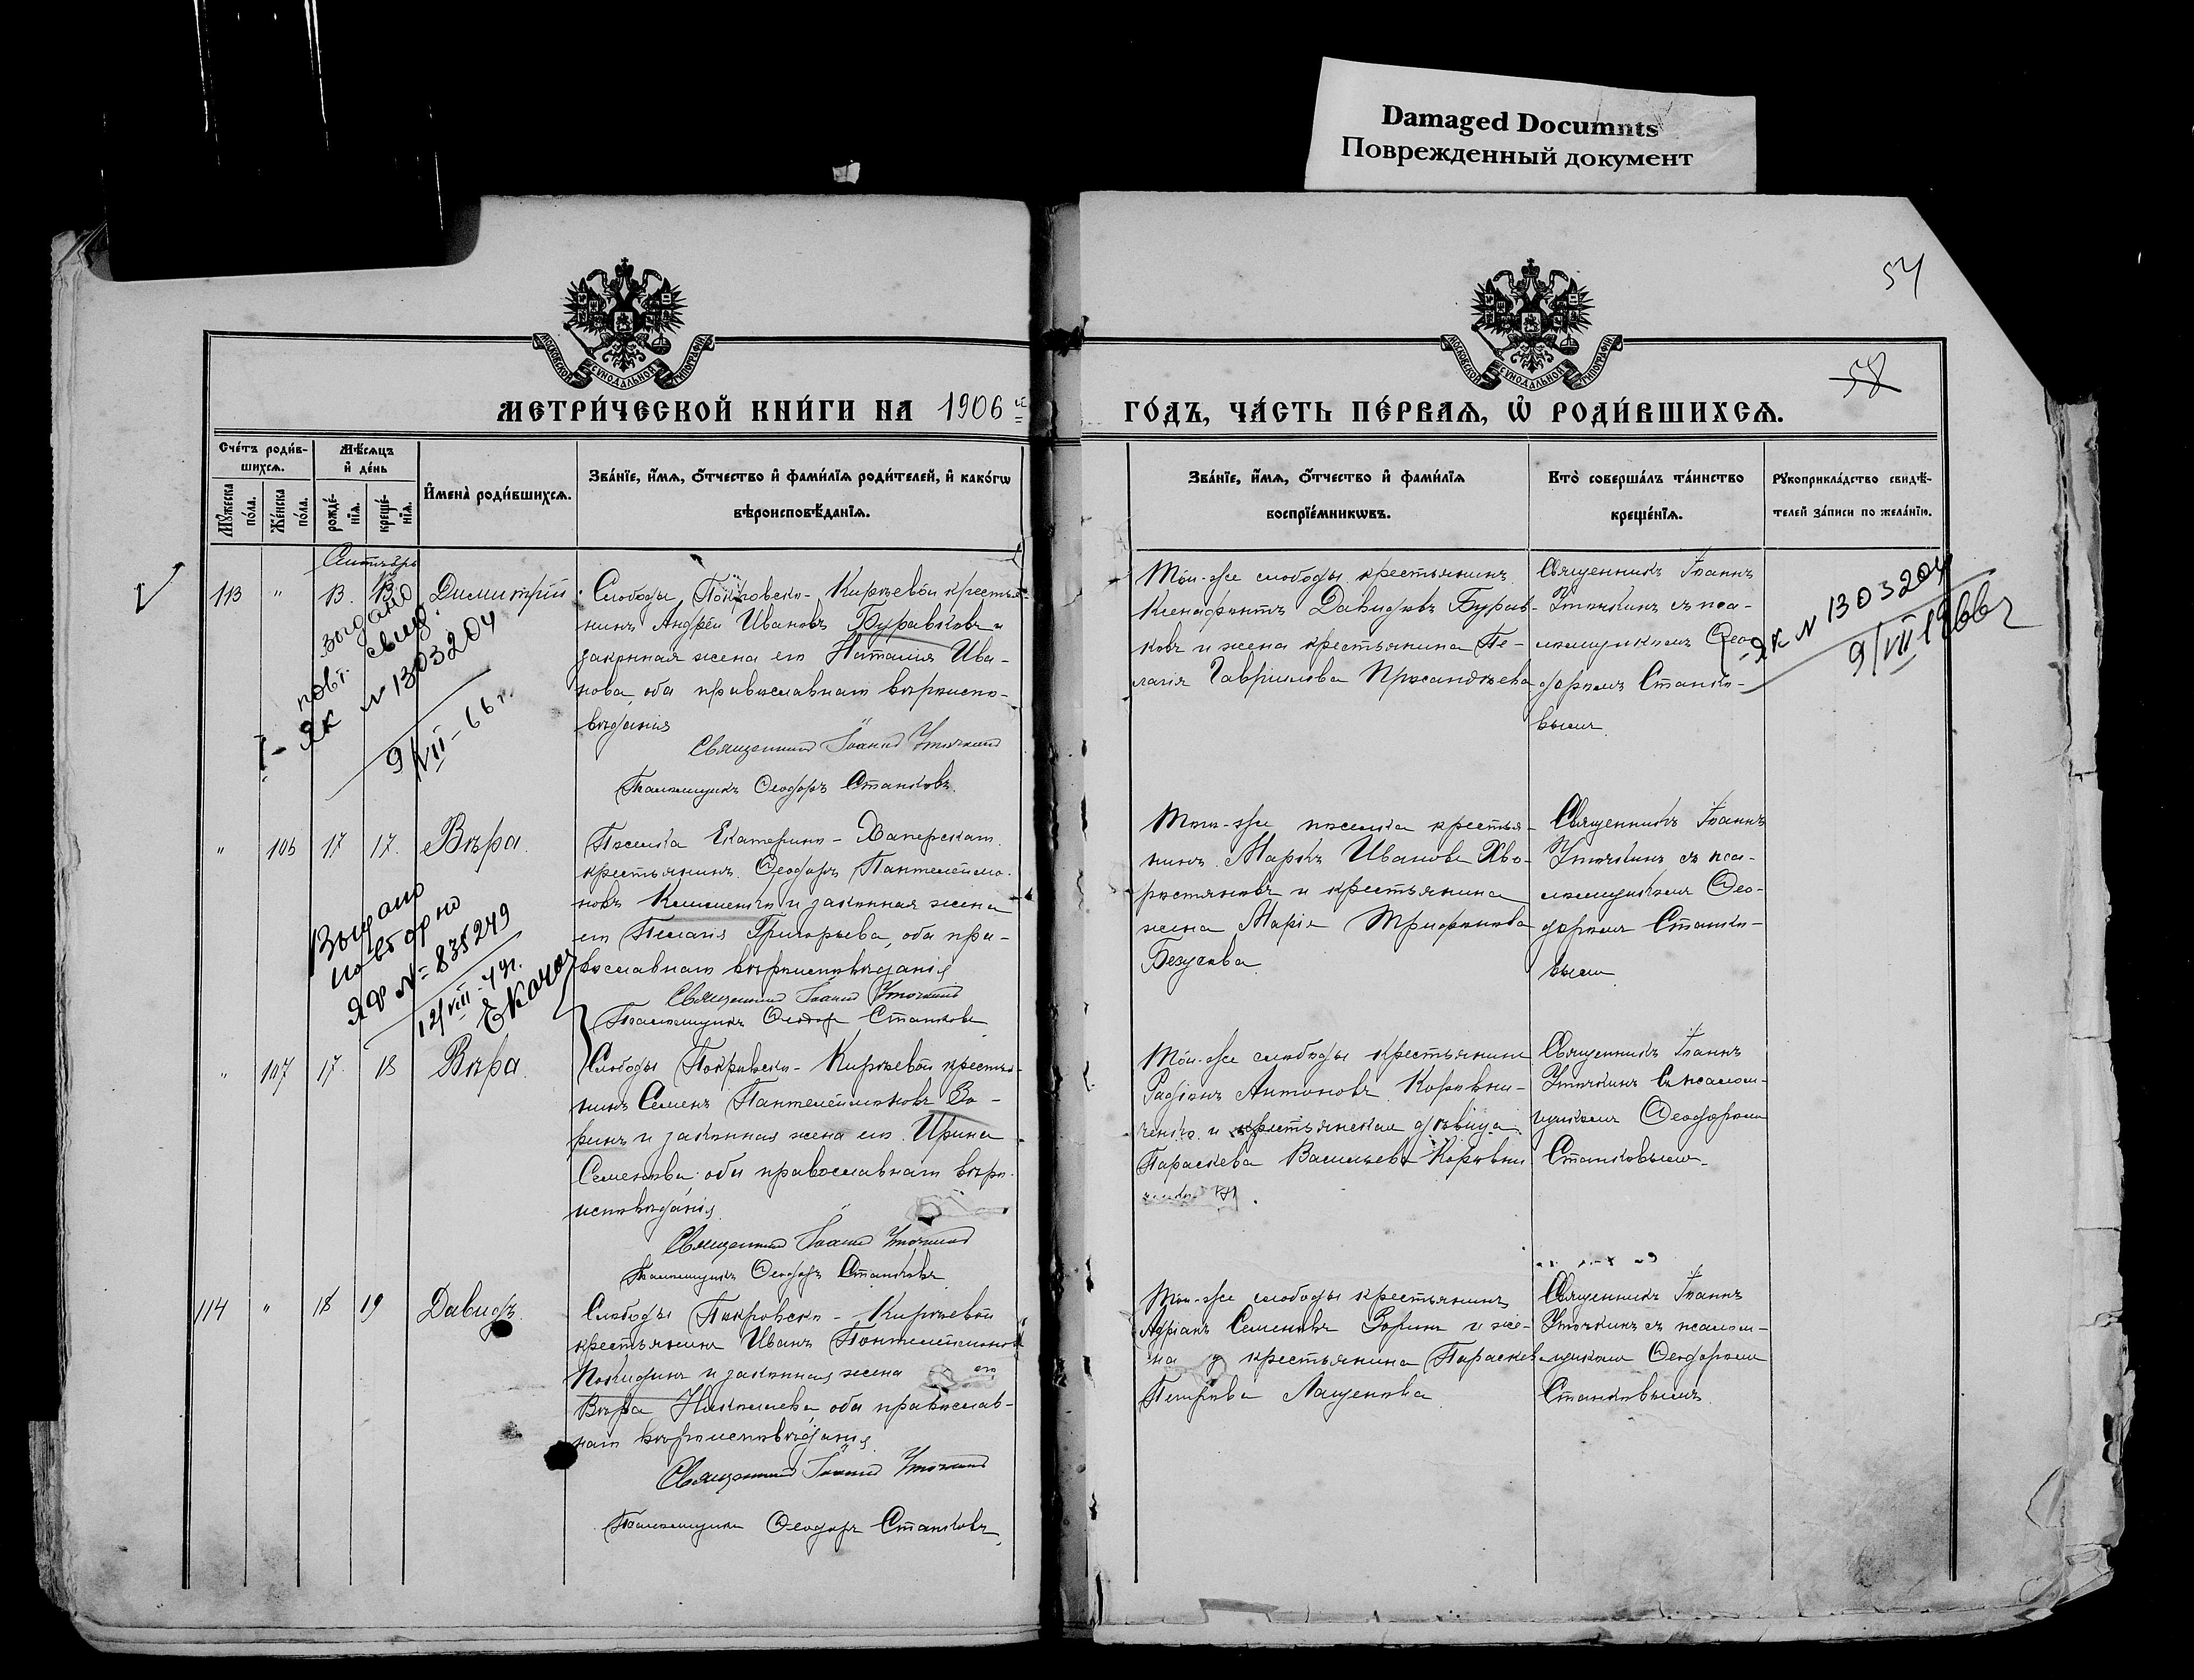 Damaged Documnts
Поврежденный документ
54
58
МОСКОВСКОЙ СѴНОДАЛЬНОЙ ТИПОГРАФІИ
МОСКОВСКОЙ СѴНОДАЛЬНОЙ ТИПОГРАФІИ
МЕТРИ́ЧЕСКОЙ КНИ́ГИ НА 1906 й
ГО́ДЪ, ЧА́СТЬ ПЕ́РВАЯ, Ѡ РОДИ́ВШИХСЯ.
Сче́тъ роди́в-
шихся.
Мѣ́сяцъ
и де́нь
Му́жеска
по́ла.
Же́нска
по́ла.
рожде́-
нія.
креще́-
нія.
Имена̀ роди́вшихся.
Зва́ніе, и́мя, о́тчество и фами́лія роди́телей, и како́гѡ
вѣроисповѣ́данія.
Зва́ніе, и́мя, о́тчество и фами́лія
воспріе́мникѡвъ.
Кто̀ соверша́лъ та́инство
креще́нія.
Рукоприкла́дство свидѣ́-
телей за́писи по жела́нію.
Сентябрь
113 " 13. 13 Димитрий
Слободы Покровско-Кирѣевой крестья-
нинъ Андрей Ивановъ Буравковъ и
законная жена его Наталия Ива-
нова, оба православнаго вѣроиспо-
вѣданія
Священникъ Іоаннъ Уточкинъ
Псаломщикъ Ѳеодоръ Станковъ.
Той-же слободы крестьянинъ
Ксенофонтъ Давидовъ Бурав-
ковъ и жена крестьянина Пе-
лагія Гаврилова
Священникъ Іоаннъ
Уточкинъ съ пса-
ломщикомъ Ѳео-
доромъ Станко-
вымъ
выдано
повт. свид.
ЯК N 1303204
9/VII-66 г.
ЯК N 1303204
9/VII 1966 г
" 106 17 17. Вѣра.
Поселка Екатерино-Хаперскаго
крестьянинъ Ѳеодоръ Пантелеймо-
новъ и законная жена
его Пелагія Григорьева, оба пра-
вославнаго вѣроисповѣданія
Священникъ Іоаннъ Уточкинъ
Псаломщикъ Ѳеодоръ Станковъ
Того-же поселка крестья-
нинъ Маркъ Ивановъ Хво-
ростяновъ и крестьянина
жена Марія Трифонова
Безуглова
Священникъ Іоаннъ
Уточкинъ съ пса-
ломщикомъ Ѳео-
доромъ Станко-
вымъ
Выдано
повторно
ЯФ № 835249
12/VIII-49г.
" 107 17. 18 Вѣра.
Слободы Покровско-Кирѣевой крестья-
нинъ Семенъ Пантелеймоновъ Зо-
ринъ и законная жена его Ирина
Семенова, оба православнаго вѣро-
исповѣданія.
Священникъ Іоаннъ Уточкинъ
Псаломщикъ Ѳеодоръ Станковъ
Той-же слободы крестьянинъ
Родіонъ Антоновъ Коровни-
ченко и крестьянская дѣвица
Параскева Васильева Коровни
ченко
Священникъ Іоаннъ
Уточкинъ съ псалом-
щикомъ Ѳеодоромъ
Станковымъ.
114 " 18 19 Давидъ.
Слободы Покровско-Кирѣевой
крестьянинъ Иванъ Пантелеймоновъ
и законная жена его
Вѣра Николаева, оба православ-
наго вѣроисповѣданія.
Священникъ Іоаннъ Уточкинъ
Псаломщикъ Ѳеодоръ Станковъ
Той-же слободы крестьянинъ
Адріанъ Семеновъ Зоринъ и же-
на крестьянина Параскева
Петрова Лащенова
Священникъ Іоаннъ
Уточкинъ съ псалом-
щикомъ Ѳеодоромъ
Станковымъ.